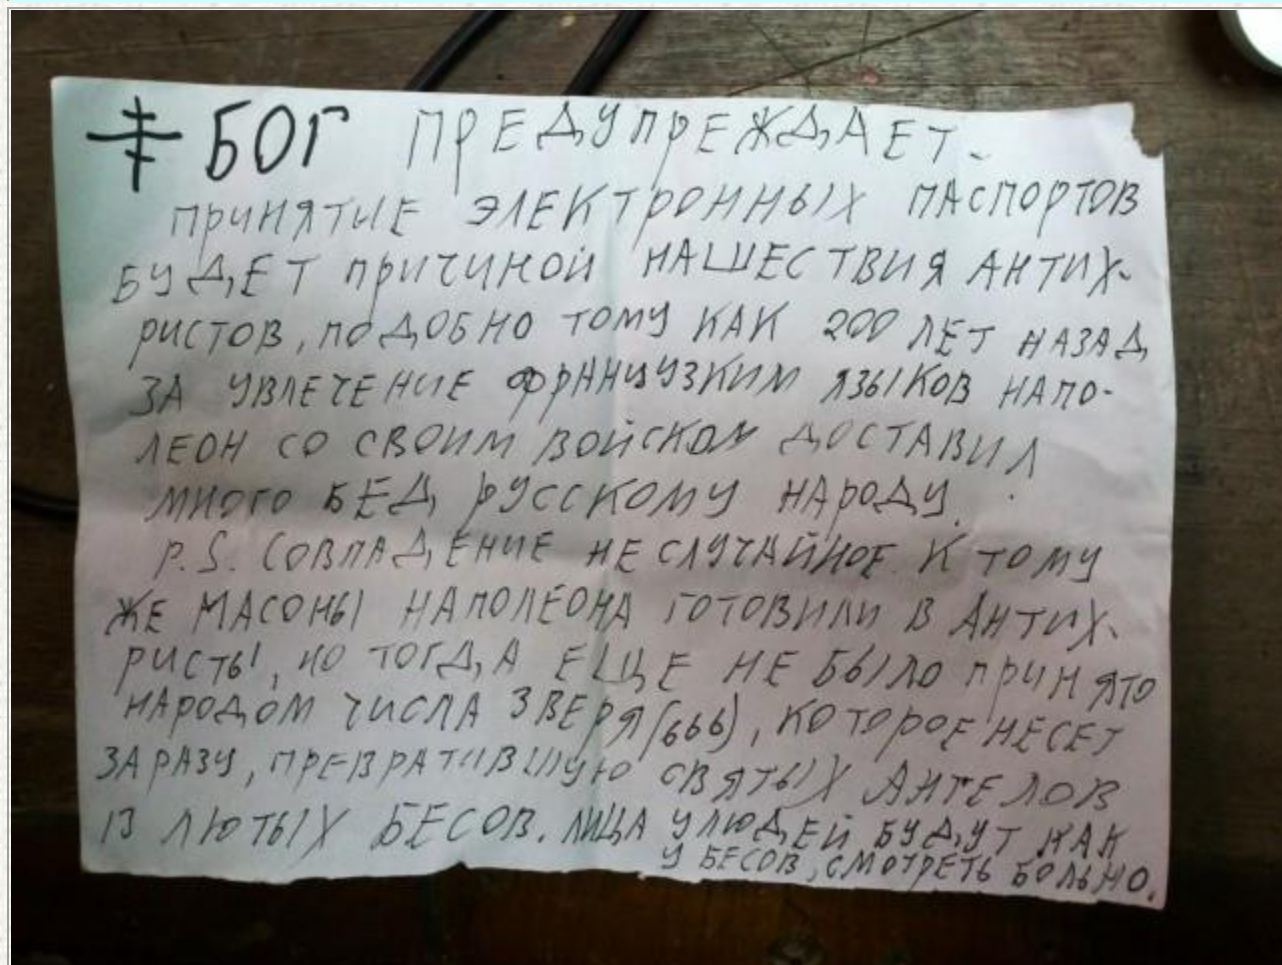 БОГ ПРЕДУПРЕЖДАЕТ-
ПРИНЯТИЕ ЭЛЕКТРОННЫХ ПАСПОРТОВ
БУДЕТ ПРИЧИНОЙ НАШЕСТВИЯ АНТИХ-
РИСТОВ, ПОДОБНО ТОМУ КАК 200 ЛЕТ НАЗАД
ЗА УВЛЕЧЕНИЕ ФРАНЦУЗКИМ ЯЗЫКОВ НАПО-
ЛЕОН СО СВОИМ ВОЙСКОМ ДОСТАВИЛ
МНОГО БЕД РУССКОМУ НАРОДУ.
P.S. СОВПАДЕНИЕ НЕ СЛУЧАЙНОЕ. К ТОМУ
ЖЕ МАСОНЫ НАПОЛЕОНА ГОТОВИЛИ В АНТИХ-
РИСТЫ, НО ТОГДА ЕЩЕ НЕ БЫЛО ПРИНЯТО
НАРОДОМ ЧИСЛА ЗВЕРЯ (666), КОТОРОЕ НЕСЕТ
ЗАРАЗУ, ПРЕВРАТИВШУЮ СВЯТЫХ АНГЕЛОВ
В ЛЮТЫХ БЕСОВ. ЛИЦА У ЛЮДЕЙ БУДУТ КАК
У БЕСОВ, СМОТРЕТЬ БОЛЬНО.